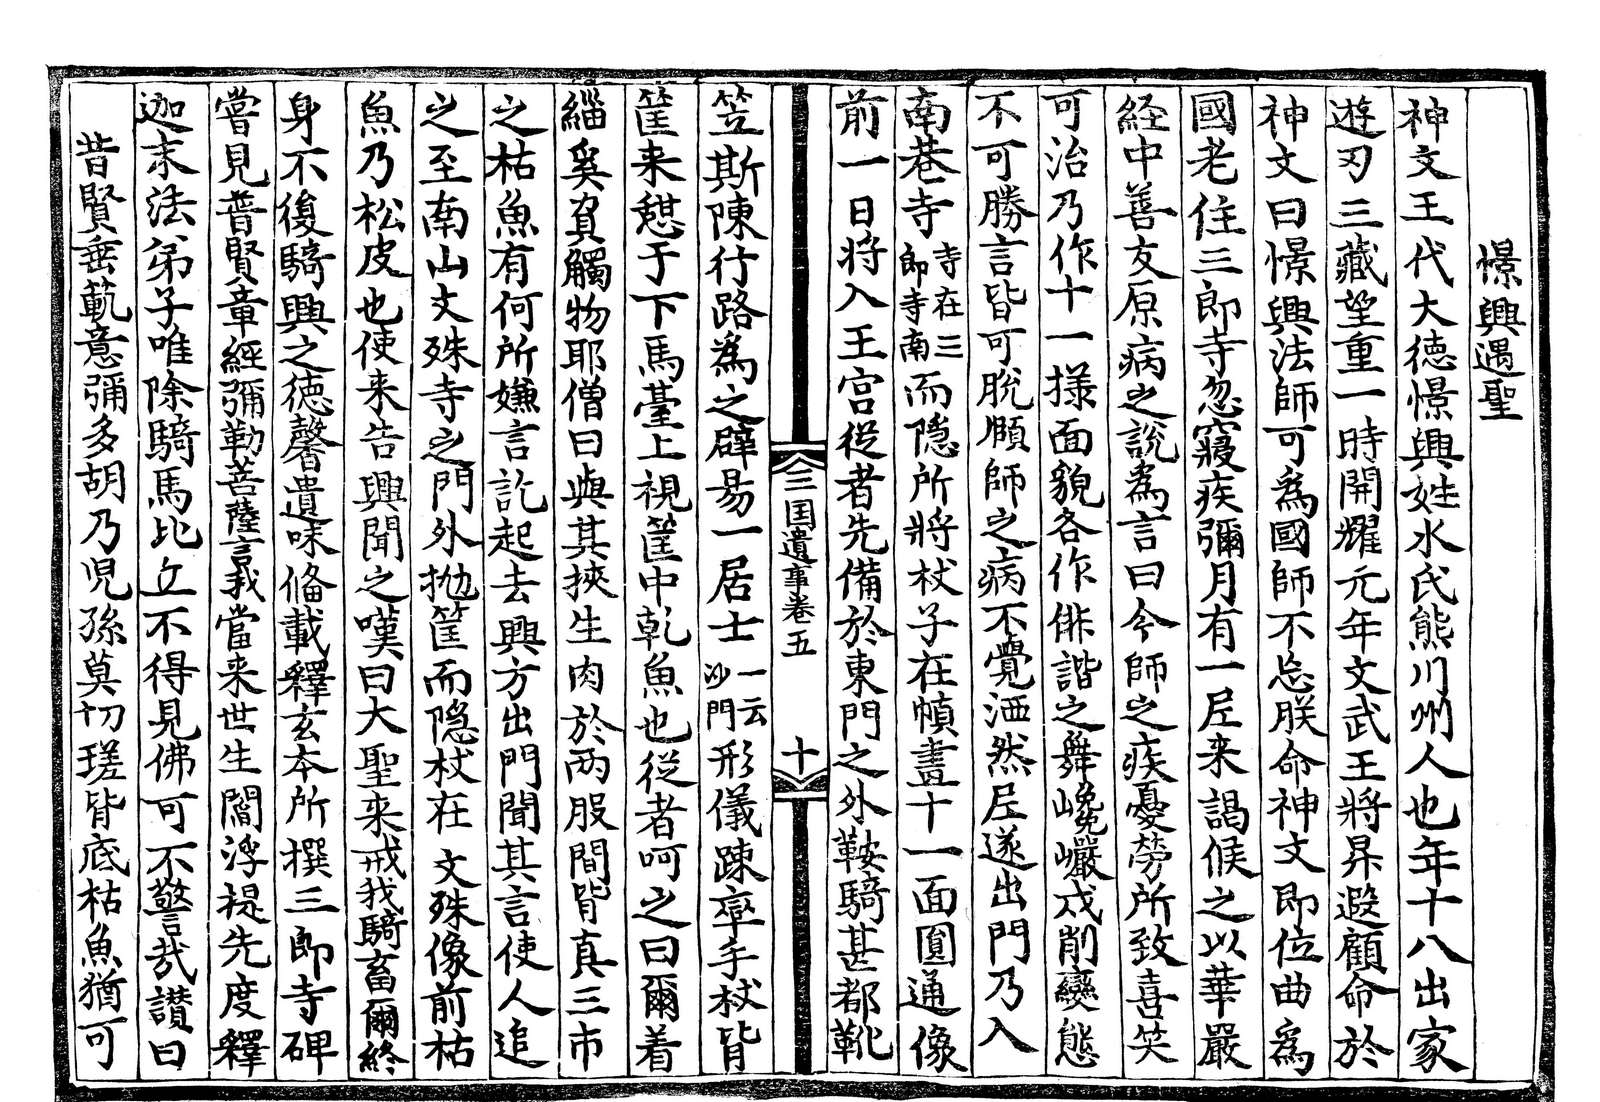 憬興遇聖
神文王代大德憬興姓水氏熊川州人也年十八出家
遊刃三藏望重一時開耀元年文武王將昇遐顧命於
神文曰憬興法師可爲國師不忘朕命神文即位曲爲
國老住三郎寺忽寢疾彌月有一尼来謁候之以華嚴
経中善友原病之說爲言曰今師之疾憂勞所致喜笑
可治乃作十一㨾面貌各作俳諧之舞巉巖戍削變態
不可勝言皆可脫頤師之病不覺洒然尼遂出門乃入
南巷寺寺在三郎寺南而隐所將杖子在幀畫十一面圎通像
前一日將入王宮從者先備於東門之外鞍騎甚都靴
三国遺事卷五 十
笠斯陳行路爲之辟易一居士一云沙門形儀踈率手杖背
筐来憇于下馬臺上視筐中乾魚也從者呵之曰爾着
緇奚負觸物耶僧曰與其挾生肉於兩股間背真三市
之枯魚有何所嫌言訖起去興方出門聞其言使人追
之至南山文殊寺之門外抛筐而隐杖在文殊像前枯
魚乃松皮也使来告興聞之嘆曰大聖来戒我騎畜爾終
身不復騎興之德馨遺味俻載釋玄本所撰三郎寺碑
嘗見普賢章經彌勒菩薩言我當来世生閻浮提先度釋
迦末法弟子唯除騎馬比丘不得見佛可不警哉讃曰
昔賢垂範意彌多胡乃児孫莫切瑳背底枯魚猶可